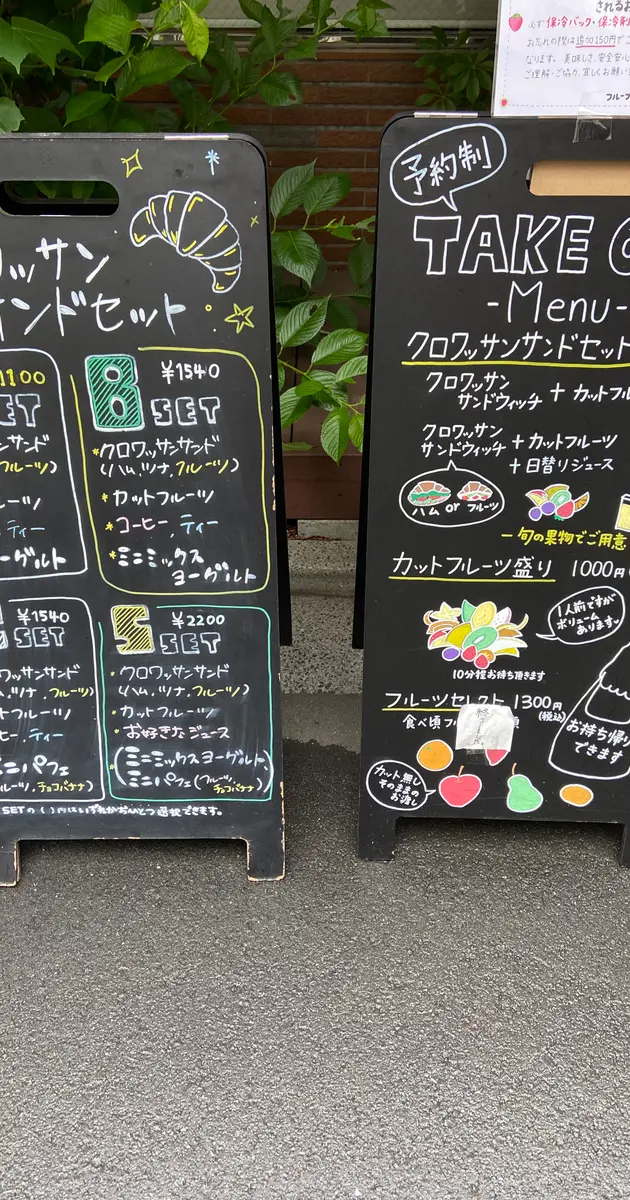 ワッサン
ンドセット
1100
SET
サンド
フルーツ)
ーツ
ティー
ーグルト
B SET
¥1540
*クロワッサンサンド
(ハム,ツナ,フルーツ)
*カットフルーツ
*コーヒー,ティー
*ミニミックス
ヨーグルト
¥1540
SET
ワッサンサンド
ム,ツナ,フルーツ)
ットフルーツ
ヒー,ティー
ミニパフェ
フルーツ,チョコバナナ)
S SET
¥2200
・クロワッサンサンド
(ハム,ツナ,フルーツ)
・カットフルーツ
・お好きなジュース
・(ミニミックスヨーグルト)
ミニパフェ(フルーツ,
チョコバナナ)
SETの( )内はいずれかおひとつ選択できます。
されるお
必ず保冷バック・保冷剤
お忘れの際は追加150円でご
なります。美味しさ、安全安心
ご理解・ご協力、宜しくお願い
フルーフ
予約制
TAKE O
-Menu-
クロワッサンサンドセット
クロワッサン
サンドウィッチ + カットフル
クロワッサン
サンドウィッチ + カットフルーツ
+ 日替りジュース
ハム or フルーツ
旬の果物でご用意
カットフルーツ盛り 1000円
1人前ですが
ボリューム
あります♥
10分程お待ち頂きます
フルーツセレクト 1300円
(税込)
食べ頃フ
お持ち帰り
できます
カット無し
そのままの
お渡し